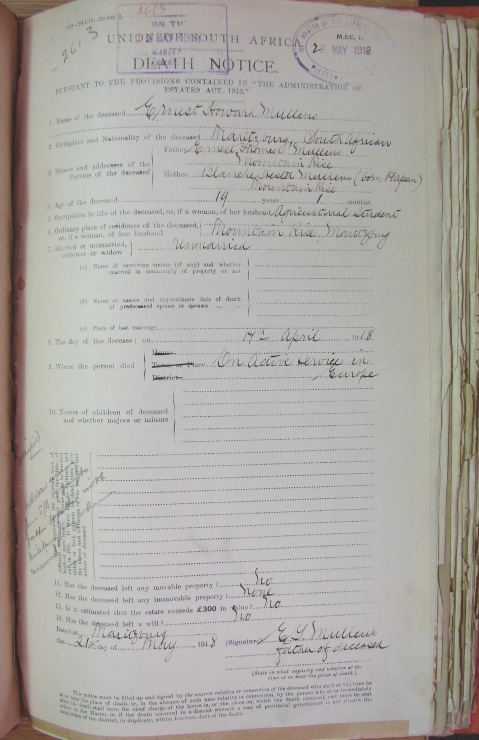 2613
3615
ON THE
2 MAY 1918
MASTER
M.S.C. 1.
2 MAY 1918
UNION OF SOUTH AFRICA.
DEATH NOTICE.
PURSUANT TO THE PROVISIONS CONTAINED IN "THE ADMINISTRATION OF
ESTATES ACT, 1913."
1. Name of the deceased Ernest Howard Mullens
2. Birthplace and Nationality of the deceased Maritzburg, South African
3. Names and addresses of the Parents of the deceased
Father Ernest Thomas Mullens
Mountain Rise
Mother Blanche Hester Mullens (born
Mountain Rise
4. Age of the deceased 19 years 1 months.
5. Occupation in life of the deceased, or, if a woman, of her husband Agricultural Student
6. Ordinary place of residence of the deceased,
or, if a woman, of her husband Mountain Rise, Maritzburg
7. Married or unmarried,
widower or widow unmarried
(a) Name of surviving spouse (if any) and whether
married in community of property or not
(b) Name or names and approximate date of death
of predeceased spouse or spouses
(c) Place of last marriage
8. The day of the decease: on 14th April 1918
9. Where the person died
House
Town or Place On Active service in
District Europe
10. Names of children of deceased
and whether majors or minors
11. Has the deceased left any movable property? No
12. Has the deceased left any immovable property? None
13. Is it estimated that the estate exceeds £300 in value? No
14. Has the deceased left a will? No
Dated at Maritzburg
the 2nd day of May 1918
(Signature) E. T. Mullens
father of deceased
(State in what capacity and whether at the
time at or near the place of death.)
This notice must be filled up and signed by the nearest relative or connection of the deceased who shall at the time be
at or near the place of death, or, in the absence of such near relative or connection, by the person who at or immediately
after the death shall have the chief charge of the house in, or the place on, which the death occurred, and must be sent